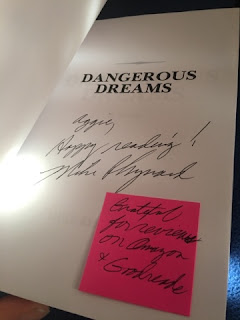 DANGEROUS
DREAMS
Aggie,
Happy reading!
Mike Rhynard
Grateful
for reviews
on Amazon
& Goodreads